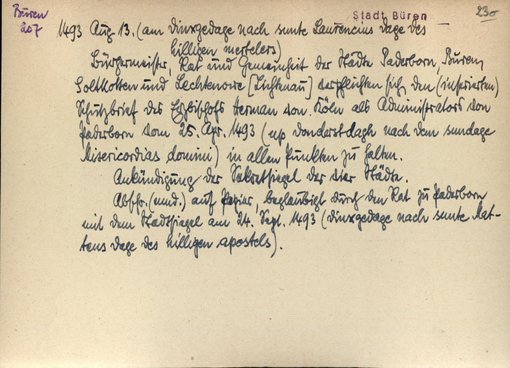 Büren
207
Stadt Büren
230
1493 Aug 13. (am dinxgedage nach sunte Laurencius dage des
hilligen mertelers)
Bürgermeister, Rat und Gemeinheit der Städte Paderborn, Buren,
Soltkotten und Lechtenowe [Lichtenau] verpflichten sich, den (inserierten)
Schutzbrief des Erzbischofs Herman von Köln als Administrators von
Paderborn vom 25. Apr. 1493 (up donderstdagh nach dem sundage
Misericordias domini) in allen Punkten zu halten.
Ankündigung der Sekretsiegel der vier Städte.
Abschr. (mnd.) auf Papier, beglaubigt durch den Rat zu Paderborn
mit dem Stadtsiegel am 24. Sept. 1493 (dinxgedage nach sunte Mat-
teus dage des hilligen apostels).